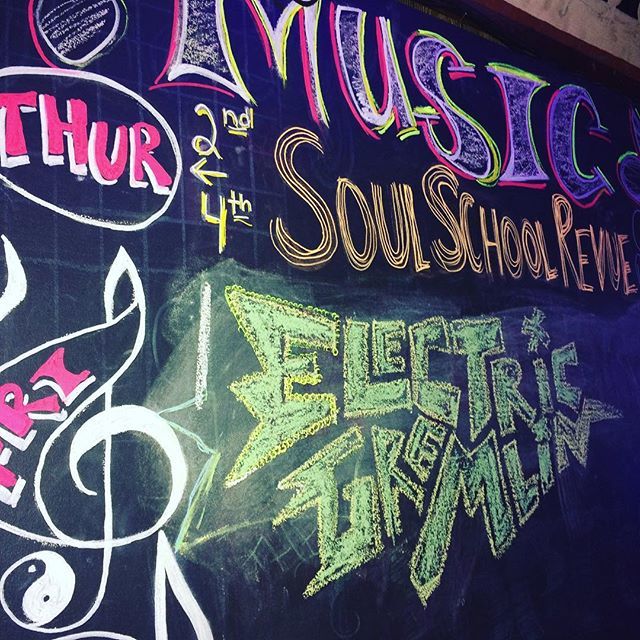 MUSIC
THUR
2nd
4th
SOUL SCHOOL REVUE
FRI
ELECTRIC
GREMLIN